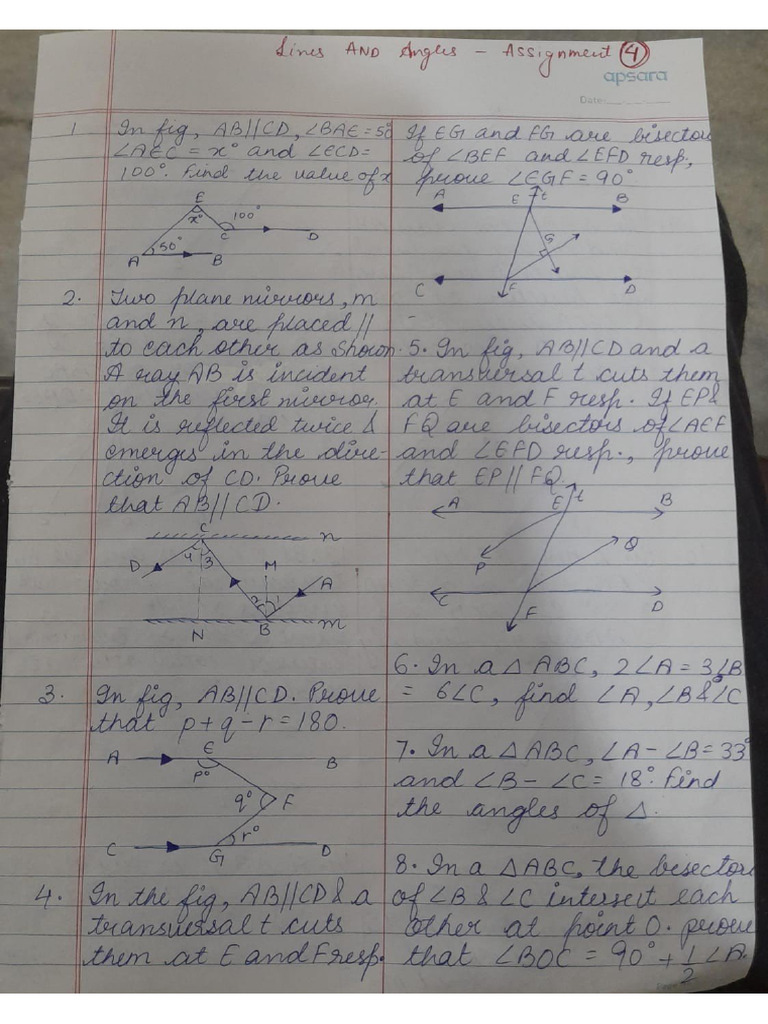 Lines AND Angles - Assignment 4
apsara
Date:
1 In fig, AB//CD, ∠BAE = 50
∠AEC = x° and ∠ECD =
100°. Find the value of x
E
x°
100°
C
D
50°
A
B
2. Two plane mirrors, m
and n, are placed //
to each other as shown.
A ray AB is incident
on the first mirror.
It is reflected twice &
emerges in the dire-
ction of CD. Prove
that AB//CD.
C
n
4
3
D
M
A
2
1
N
B
m
3. In fig, AB//CD. Prove
that p+q-r = 180.
A
E
B
p°
q°
F
r°
C
G
D
4. In the fig, AB//CD & a
transversal t cuts
them at E and F resp.
If EG and FG are bisectors
of ∠BEF and ∠EFD resp.,
prove ∠EGF = 90°
A
E
t
B
G
C
F
D
5. In fig, AB//CD and a
transversal t cuts them
at E and F resp. If EP &
FQ are bisectors of ∠AEF
and ∠EFD resp., prove
that EP//FQ.
A
E
t
B
P
Q
C
F
D
6. In a △ ABC, 2∠A = 3∠B
= 6∠C, find ∠A, ∠B & ∠C
7. In a △ ABC, ∠A - ∠B = 33°
and ∠B - ∠C = 18°. Find
the angles of △.
8. In a △ABC, the bisectors
of ∠B & ∠C intersect each
other at point O. prove
that ∠BOC = 90° + 1/2 ∠A.